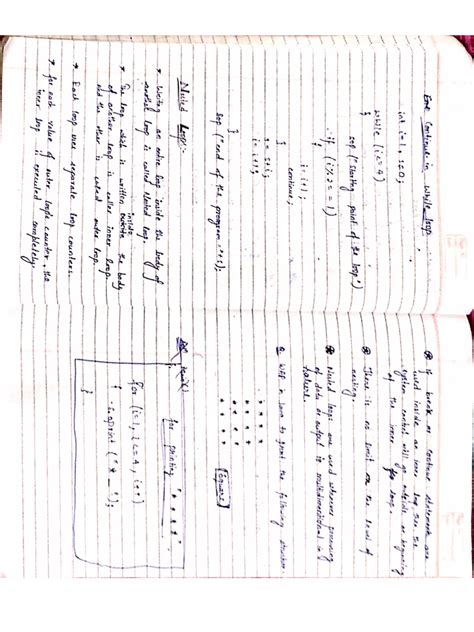 Eg: Continue in While loop
int i=1, s=0;
while (i<=4)
{
sop ("starting point of the loop")
if (i%2==1)
{
i=i+1;
continue;
}
s=s+i;
i=i+1;
}
sop ("end of the program "+s);
Nested loop:-
* Writing an entire loop inside the body of
another loop is called Nested loop.
* The loop which is written inside the body
of another loop is called inner loop
and the other is called outer loop.
* Each loop uses separate loop counters.
* for each value of outer loop counter, the
inner loop is executed completely.
If break or Continue statement are
used inside an inner loop then the
system control will go outside or beginning
of the inner loop.
There is no limit on the level of
nesting.
Nested loops are used whenever processing
of data or output is multidimensional in
nature.
Q. WAP in Java to print the following structure.
* * * *
* * * *
* * * *
* * * *
Square
for printing "* * * *"
for (i=1, i<=4, i++)
{
s.o.print ("*_");
}